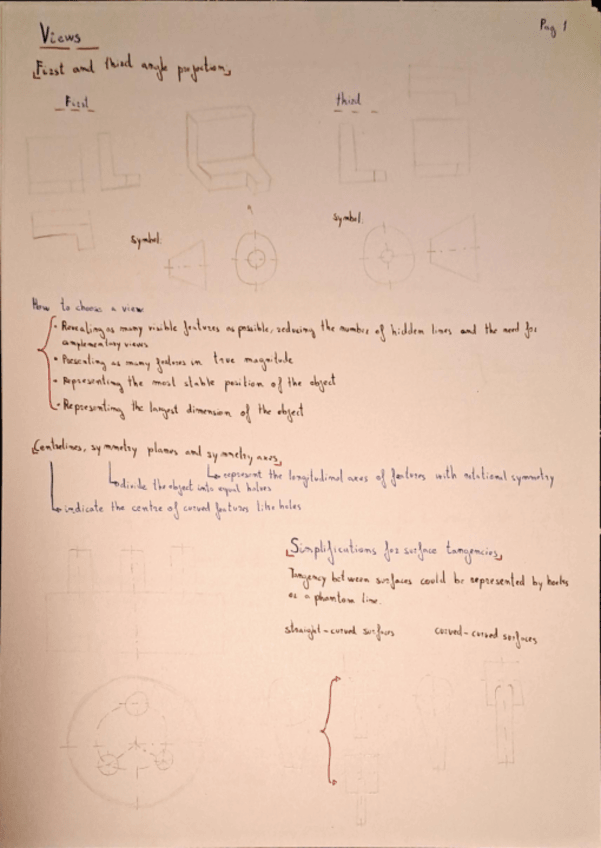 Pag 1
Views
First and third angle projection
First
third
symbol:
symbol:
How to choose a view
• Revealing as many visible features as possible, reducing the number of hidden lines and the need for
complementary views
• Presenting as many features in true magnitude
• Representing the most stable position of the object
• Representing the largest dimension of the object
Centrelines, symmetry planes and symmetry axes
represent the longitudinal axes of features with rotational symmetry
divide the object into equal halves
indicate the centre of curved features like holes
Simplifications for surface tangencies
Tangency between surfaces could be represented by
or a phantom line.
straight-curved surfaces
curved-curved surfaces